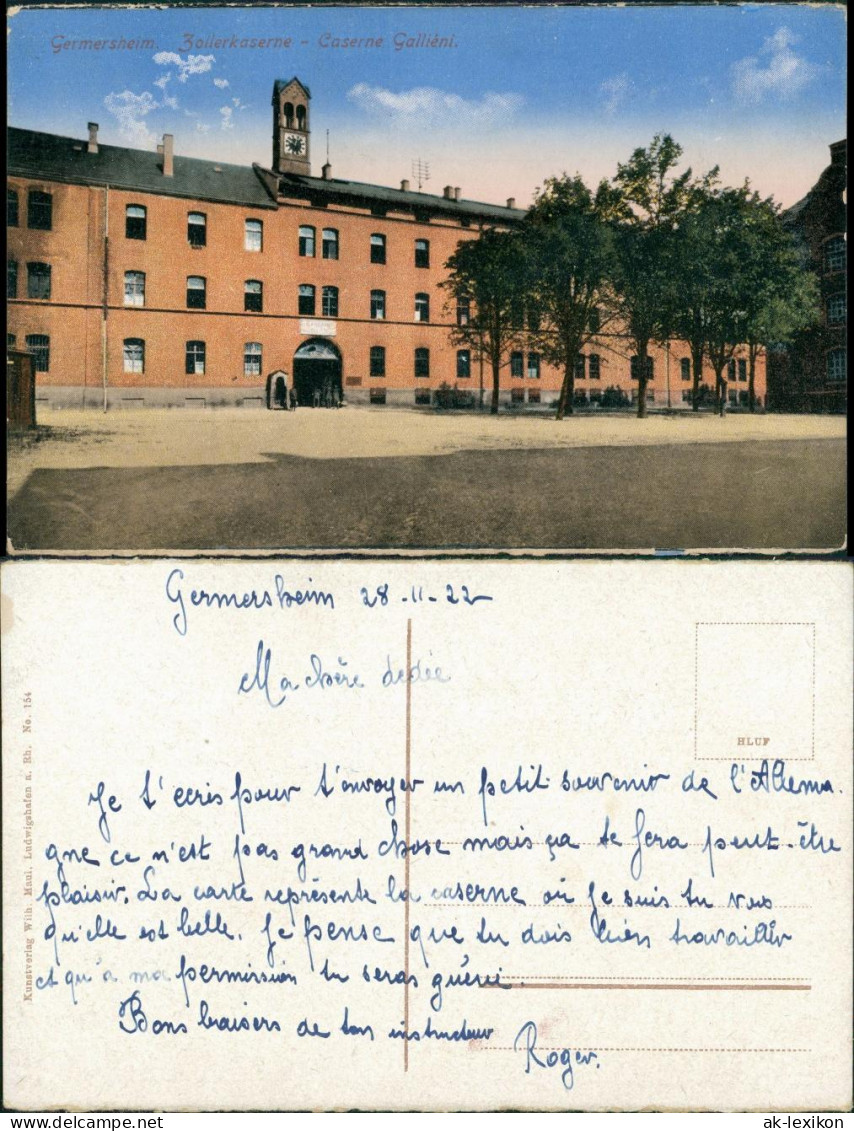 Germersheim. Zoilerkaserne - Caserne Galliéni.
Germersheim 28-11-22
Ma chère dedée
Je t'ecris pour t'envoyer un petit souvenir de l'Allema.
gne ce n'est pas grand chose mais ça te fera peut-être
plaisir. La carte représente la caserne où je suis tu vois
qu'elle est belle. Je pense que tu dois bien travailler
et qu'a ma permission tu seras guérie.
Bons baisers de ton instructeur
Roger.
HLUF
Kunstverlag Wilh. Maul, Ludwigshafen a. Rh. No. 154
ak-lexikon